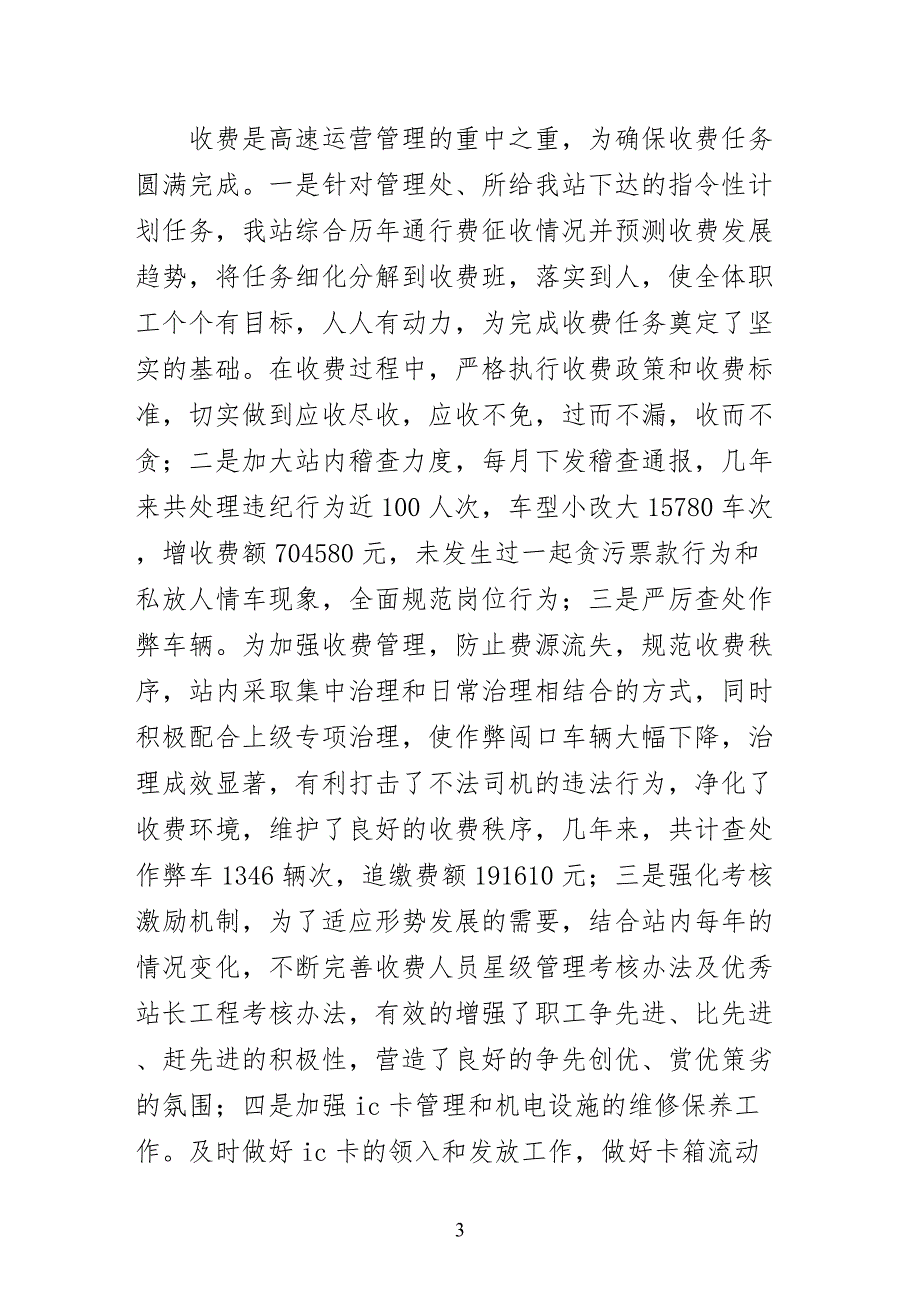 收费是高速运营管理的重中之重，为确保收费任务
圆满完成。一是针对管理处、所给我站下达的指令性计
划任务，我站综合历年通行费征收情况并预测收费发展
趋势，将任务细化分解到收费班，落实到人，使全体职
工个个有目标，人人有动力，为完成收费任务奠定了坚
实的基础。在收费过程中，严格执行收费政策和收费标
准，切实做到应收尽收，应收不免，过而不漏，收而不
贪；二是加大站内稽查力度，每月下发稽查通报，几年
来共处理违纪行为近 100 人次，车型小改大 15780 车次
，增收费额 704580 元，未发生过一起贪污票款行为和
私放人情车现象，全面规范岗位行为；三是严厉查处作
弊车辆。为加强收费管理，防止费源流失，规范收费秩
序，站内采取集中治理和日常治理相结合的方式，同时
积极配合上级专项治理，使作弊闯口车辆大幅下降，治
理成效显著，有利打击了不法司机的违法行为，净化了
收费环境，维护了良好的收费秩序，几年来，共计查处
作弊车 1346 辆次，追缴费额 191610 元；三是强化考核
激励机制，为了适应形势发展的需要，结合站内每年的
情况变化，不断完善收费人员星级管理考核办法及优秀
站长工程考核办法，有效的增强了职工争先进、比先进
、赶先进的积极性，营造了良好的争先创优、赏优策劣
的氛围；四是加强 ic 卡管理和机电设施的维修保养工
作。及时做好 ic 卡的领入和发放工作，做好卡箱流动
3